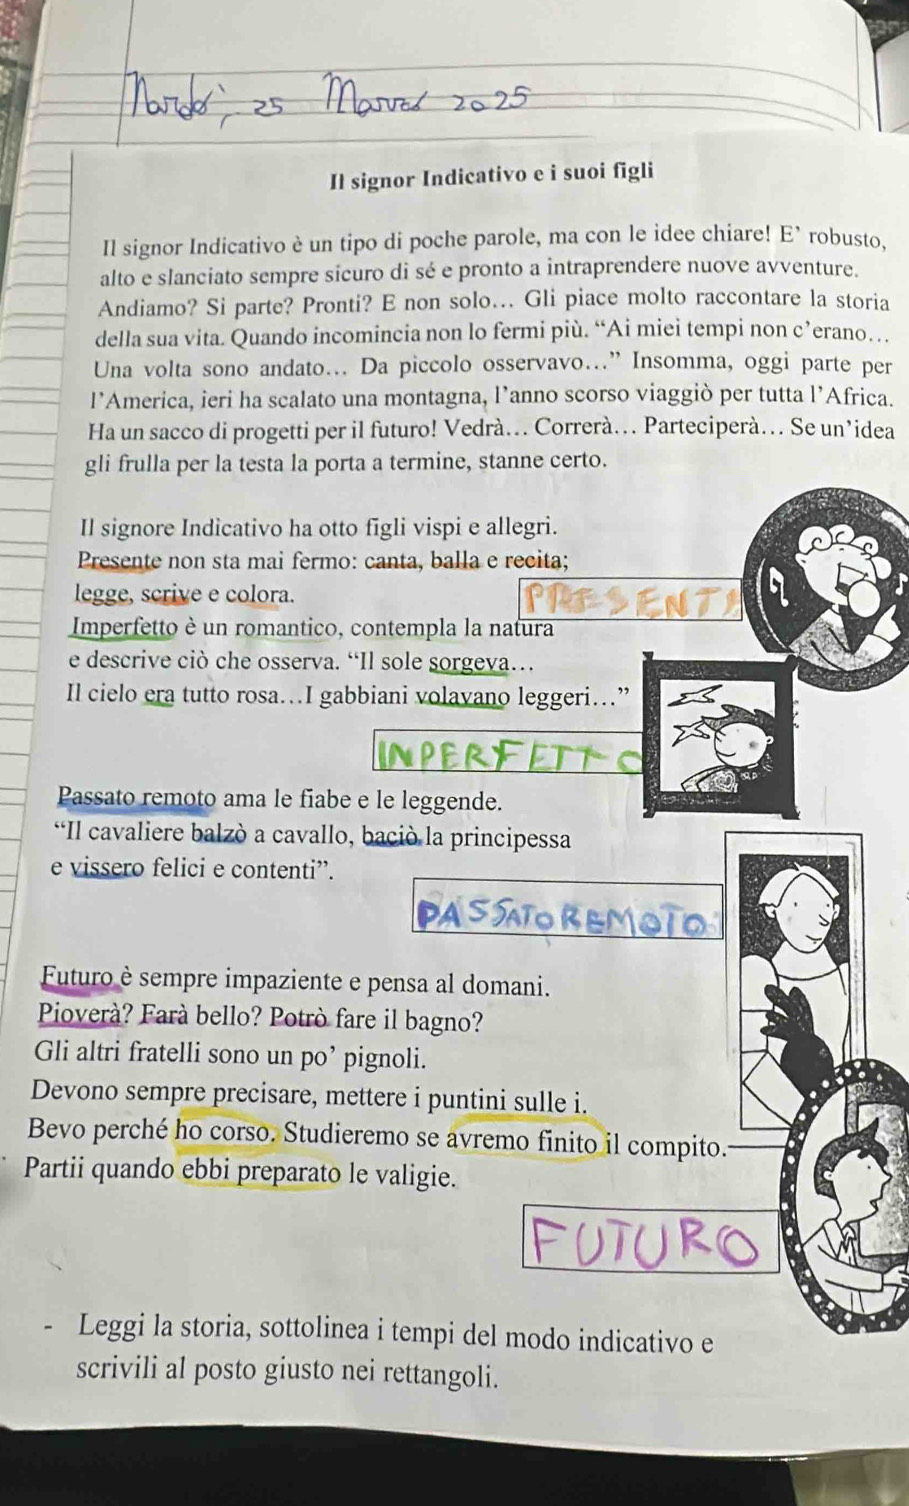 Mardì, 25 Marzo 2025
Il signor Indicativo e i suoi figli
Il signor Indicativo è un tipo di poche parole, ma con le idee chiare! E’ robusto,
alto e slanciato sempre sicuro di sé e pronto a intraprendere nuove avventure.
Andiamo? Si parte? Pronti? E non solo… Gli piace molto raccontare la storia
della sua vita. Quando incomincia non lo fermi più. “Ai miei tempi non c’erano…
Una volta sono andato… Da piccolo osservavo…” Insomma, oggi parte per
l’America, ieri ha scalato una montagna, l’anno scorso viaggiò per tutta l’Africa.
Ha un sacco di progetti per il futuro! Vedrà… Correrà… Parteciperà… Se un’idea
gli frulla per la testa la porta a termine, stanne certo.
Il signore Indicativo ha otto figli vispi e allegri.
Presente non sta mai fermo: canta, balla e recita;
legge, scrive e colora.
PRESENTE
Imperfetto è un romantico, contempla la natura
e descrive ciò che osserva. “Il sole sorgeva…
Il cielo era tutto rosa…I gabbiani volavano leggeri…”
INPERFETTO
Passato remoto ama le fiabe e le leggende.
“Il cavaliere balzò a cavallo, baciò la principessa
e vissero felici e contenti”.
PASSATO REMOTO
Futuro è sempre impaziente e pensa al domani.
Pioverà? Farà bello? Potrò fare il bagno?
Gli altri fratelli sono un po’ pignoli.
Devono sempre precisare, mettere i puntini sulle i.
Bevo perché ho corso. Studieremo se avremo finito il compito.
Partii quando ebbi preparato le valigie.
FUTURO
- Leggi la storia, sottolinea i tempi del modo indicativo e
scrivili al posto giusto nei rettangoli.